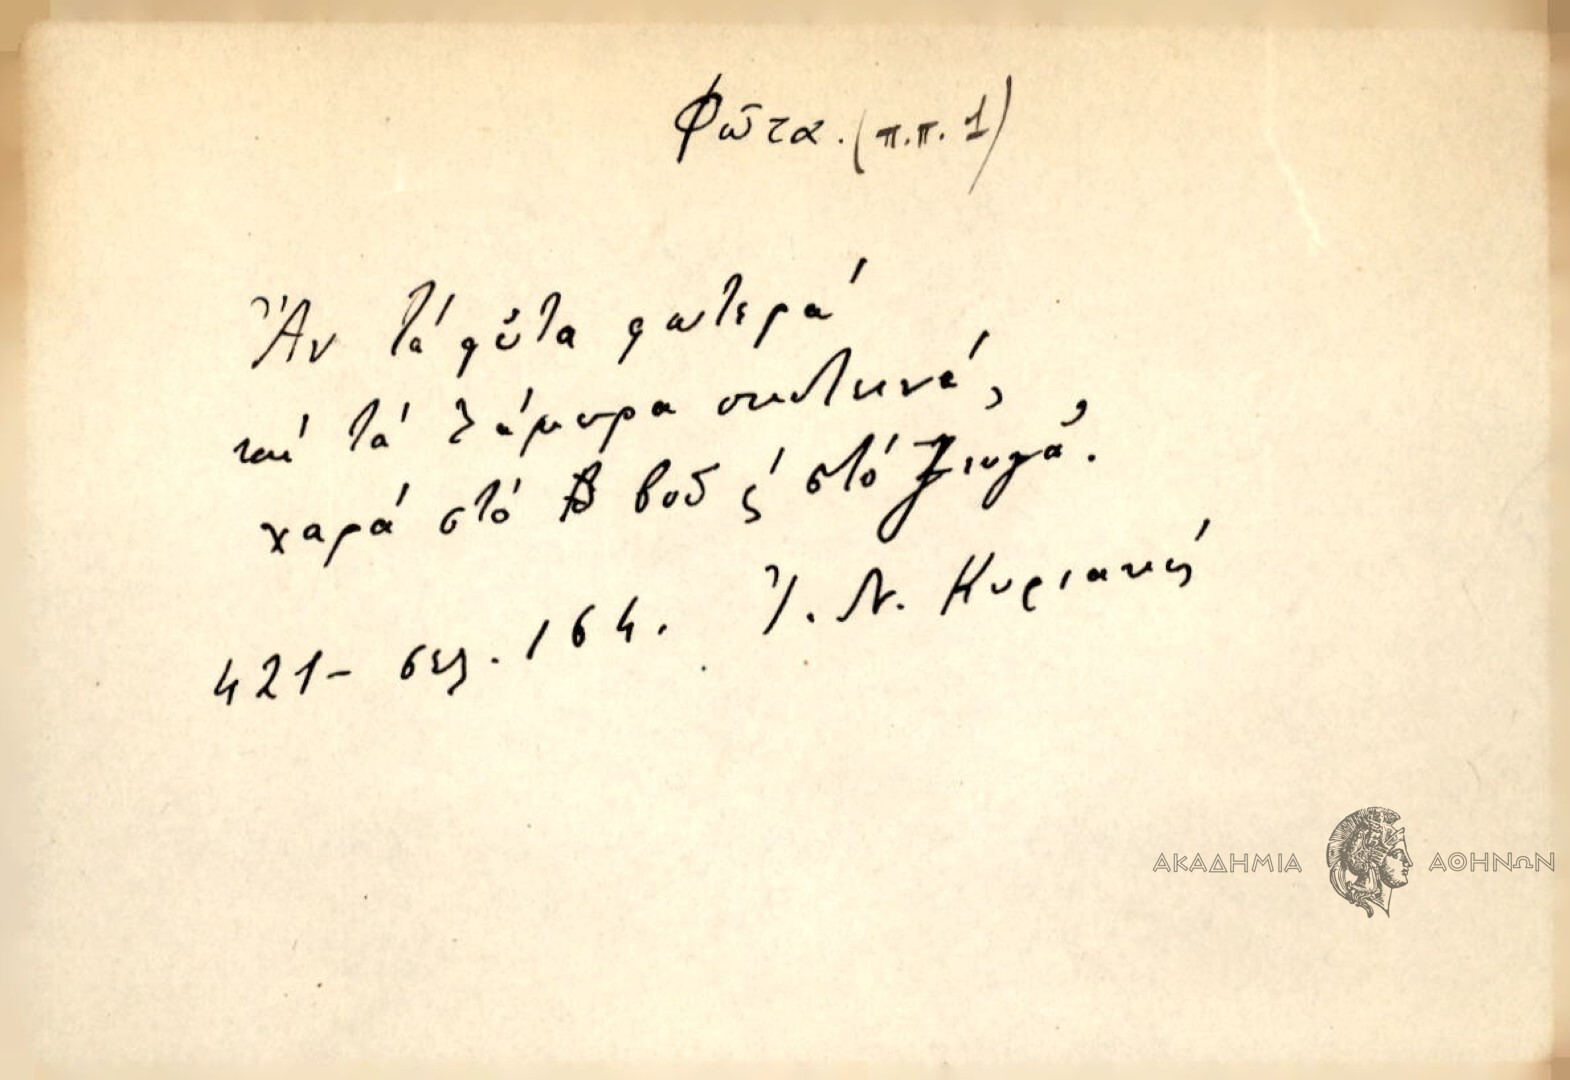 Φῶτα. (π.π. 1)
Ἂν τά φῶτα φωτερά
καί τά Λάμπρα σκοτεινά,
χαρά στό βοδ ς́ στό ζευγά.
421 - σελ. 164. Ἰ. Ν. Κυριακής
ΑΚΑΔΗΜΙΑ ΑΘΗΝΩΝ